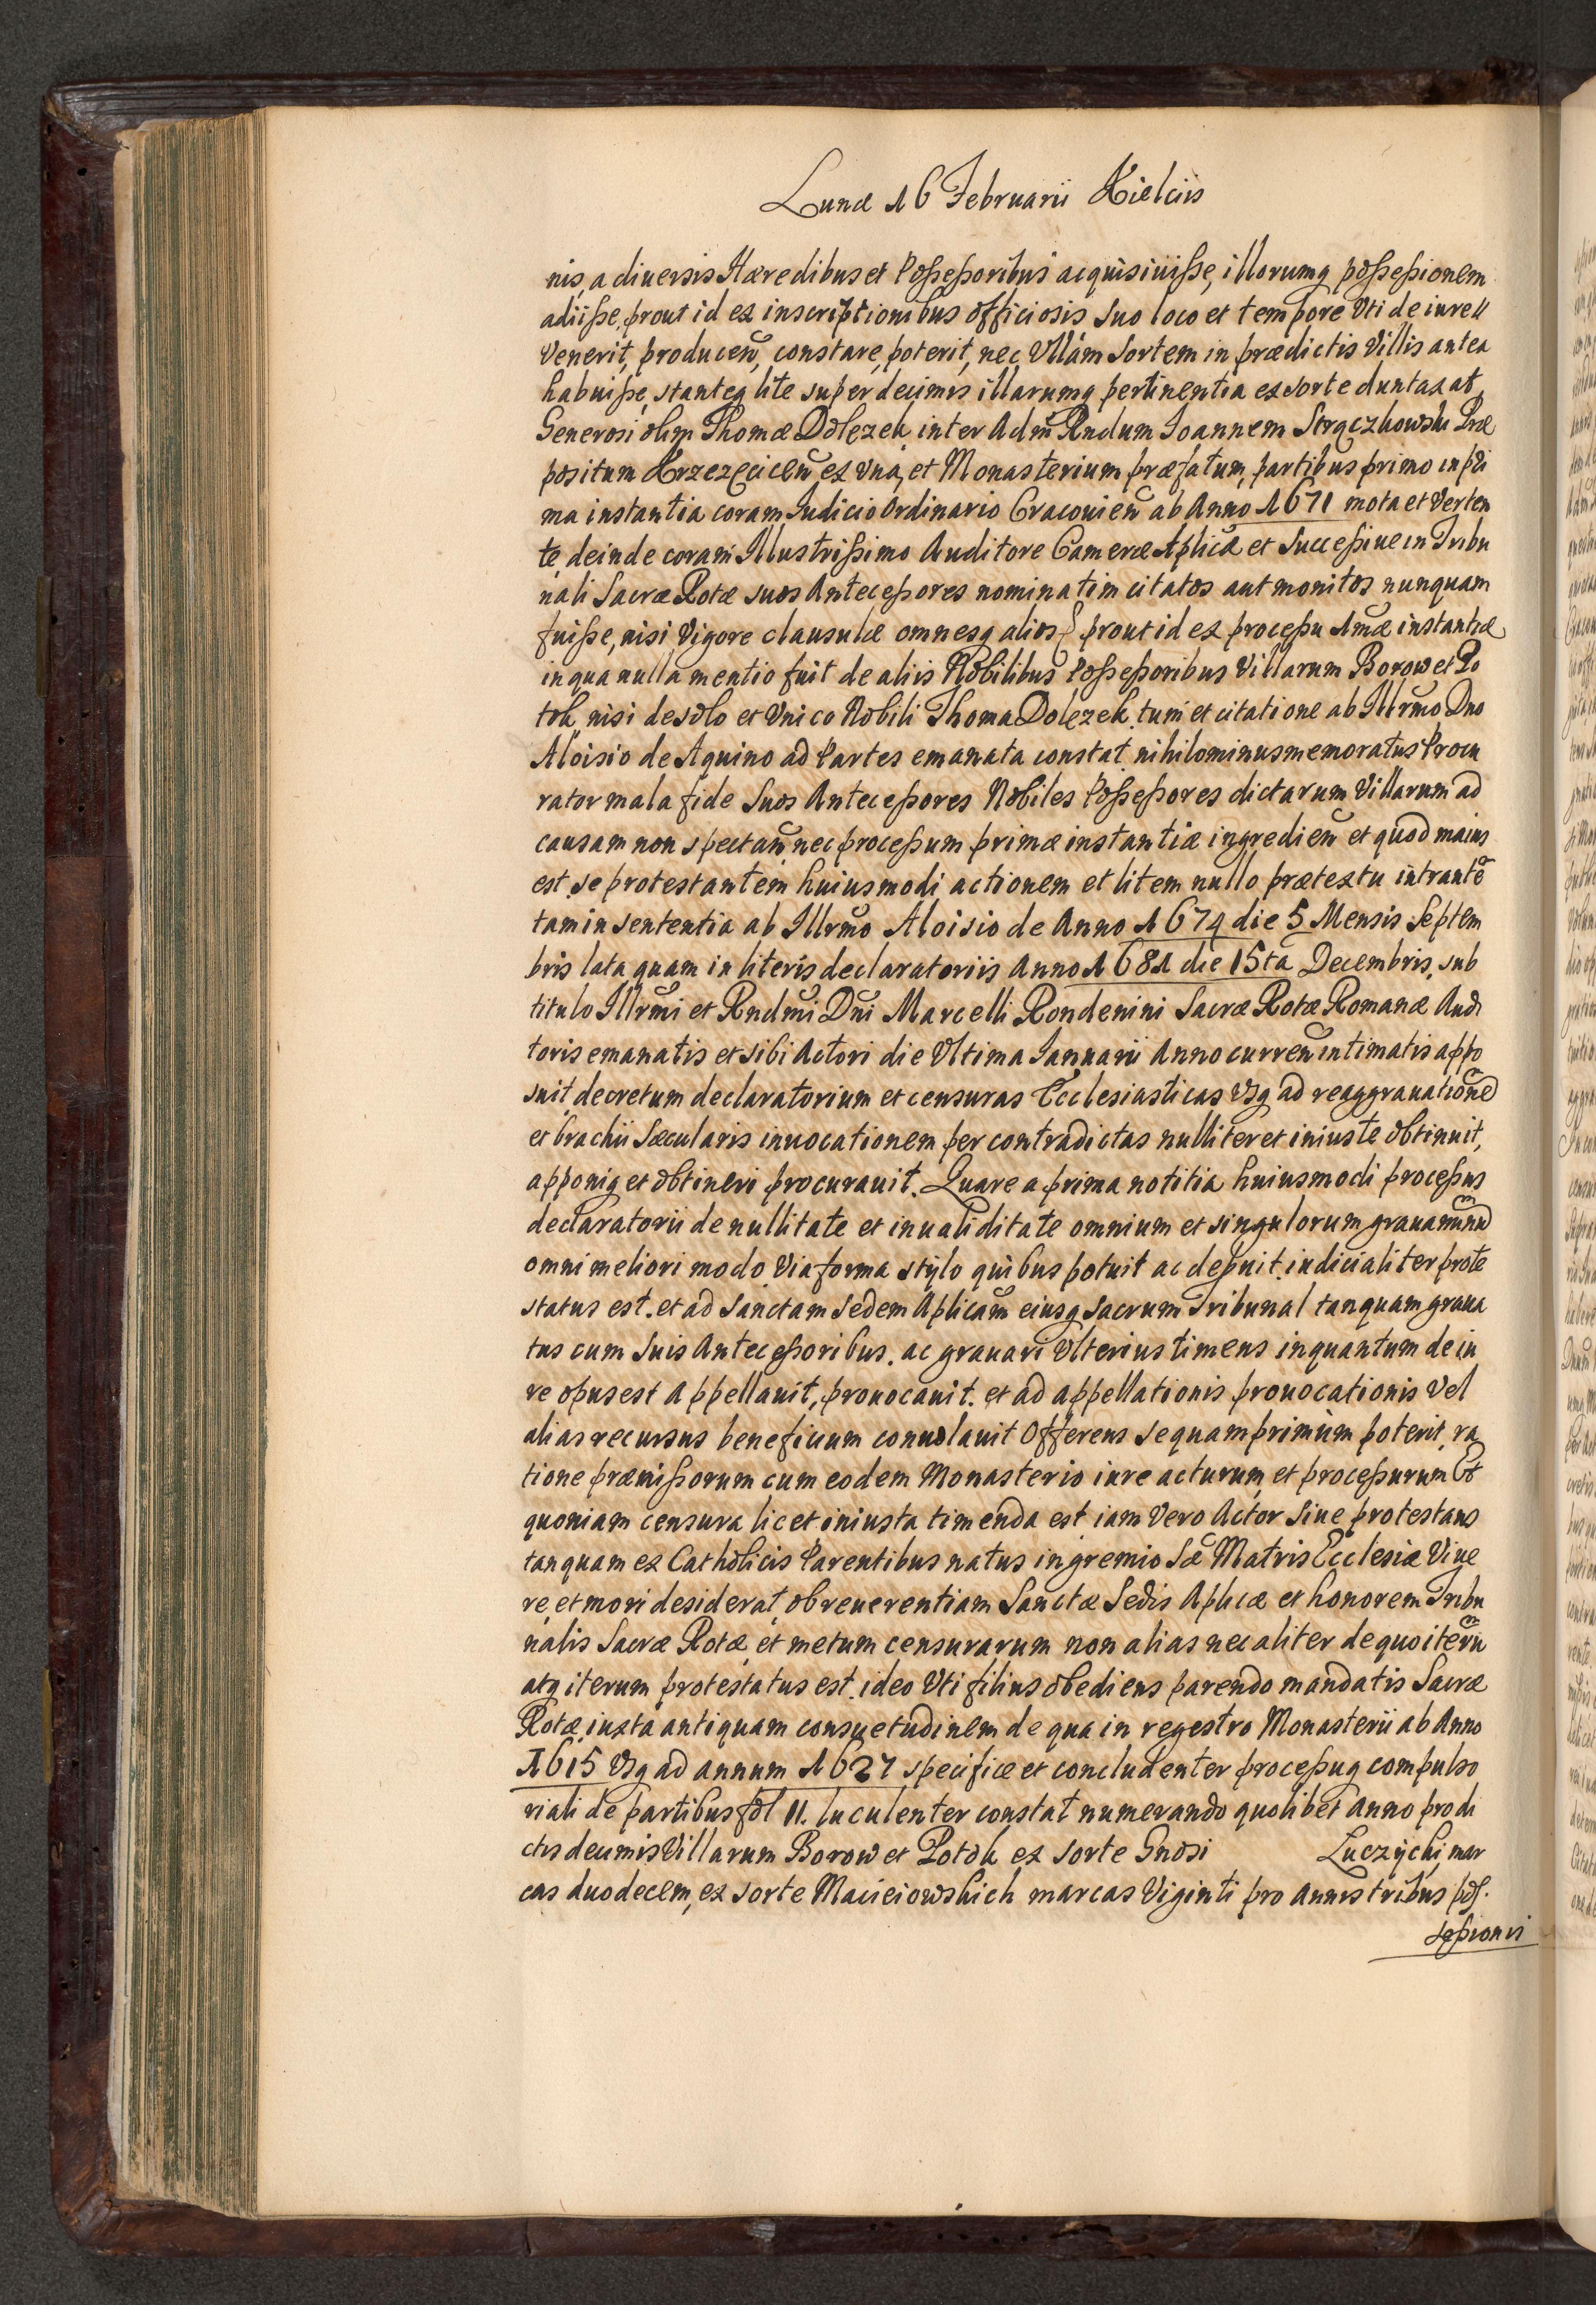 Lunæ 16 Februarii Kielciis
nis, a diuersis Hæredibus et Possessoribus acquisiuisse, illorumq possessionem
adiisse, prout id ex inscriptionibus officiosis suo loco et tempore Vti de iure
Venerit, producen, constare, poterit, nec Vllam Sortem in prædictis Villis antea
habuisse, stanteq lite super decimis illarumq pertinentia ex sorte duntaxat
Generosi olim Thomæ Dolęzek inter Adm Rndum Joannem Strączkowski Præ
positum Krzezęcicen ex Vna, et Monasterium præfatum, partibus primo in pri
ma instantia coram Iudicio Ordinario Cracouien ab Anno 1671 mota et Verten
te, deinde coram Illustrissimo Auditore Cameræ Aplicæ et Successiue in Tribu
nali Sacræ Rotæ suos Antecessores nominatim citatos aut monitos nunquam
fuisse, nisi Vigore clausulæ omnesq alios prout id ex processu 1mæ instantiæ
in qua nulla mentio fuit de aliis Nobilibus Possessoribus Villarum Borow et Po
tok, nisi de solo et Vnico Nobili Thoma Dolęzek, tum et citatione ab Illrmo Dno
Aloisio de Aquino ad Partes emanata constat, nihilominus memoratus Procu
rator mala fide Suos Antecessores Nobiles Possessores dictarum Villarum ad
causam non spectan nec processum primæ instantiæ ingredien et quod maius
est se protestantem huiusmodi actionem et litem nullo prætextu intrante
tam in sententia ab Illrmo Aloisio de Anno 1674 die 5 Mensis Septem
bris lata quam in literis declaratoriis Anno 1681 die 15ta Decembris, sub
titulo Illrmi et Rndmi Dni Marcelli Rondenini Sacræ Rotæ Romanæ Audi
toris emanatis et sibi Actori die Vltima Januarii Anno curren intimatis appo
suit, decretum declaratorium et censuras Ecclesiasticas Vsq ad reaggrauatione
et brachii sæcularis inuocationem per contradictas nulliter et iniuste obtinuit,
apponiq et obtineri procurauit. Quare a prima notitia huiusmodi processus
declaratorii de nullitate et inualiditate omnium et singulorum grauaminu
omni meliori modo Via forma stylo quibus potuit ac debuit, iudicialiter prote
status est. et ad Sanctam Sedem Aplicam eiusq Sacrum Tribunal tanquam graua
tus cum Suis Antecessoribus. ac grauari Vlterius timens inquantum de iu
re opus est Appellauit, prouocauit. et ad appellationis prouocationis Vel
alias recursus beneficium conuolauit Offerens se quamprimum poterit, ra
tione præmissorum cum eodem Monasterio iure acturum et processurum Et
quoniam censura licet iniusta timenda est iam Vero Actor Siue protestans
tanquam ex Catholicis Parentibus natus in gremio Sæ Matris Ecclesiæ Viue
re, et mori desiderat, ob reuerentiam Sanctæ Sedis Aplicæ et honorem Tribu
nalis Sacræ Rotæ, et metum censurarum non alias nec aliter de quo iteru
atq iterum protestatus est. ideo Vti filius obediens parendo mandatis Sacræ
Rotæ, iuxta antiquam consuetudinem de qua in regestro Monasterii ab Anno
1615 Vsq ad annum 1627 specifice et concludenter processuq compulso
riali de partibus fol 11. luculenter constat numerando quolibet Anno pro di
ctis decimis Villarum Borow et Potok ex sorte Gnosi Luczycki mar
cas duodecem, ex sorte Macieiowskich marcas Viginti pro annis tribus pos.
sessionis